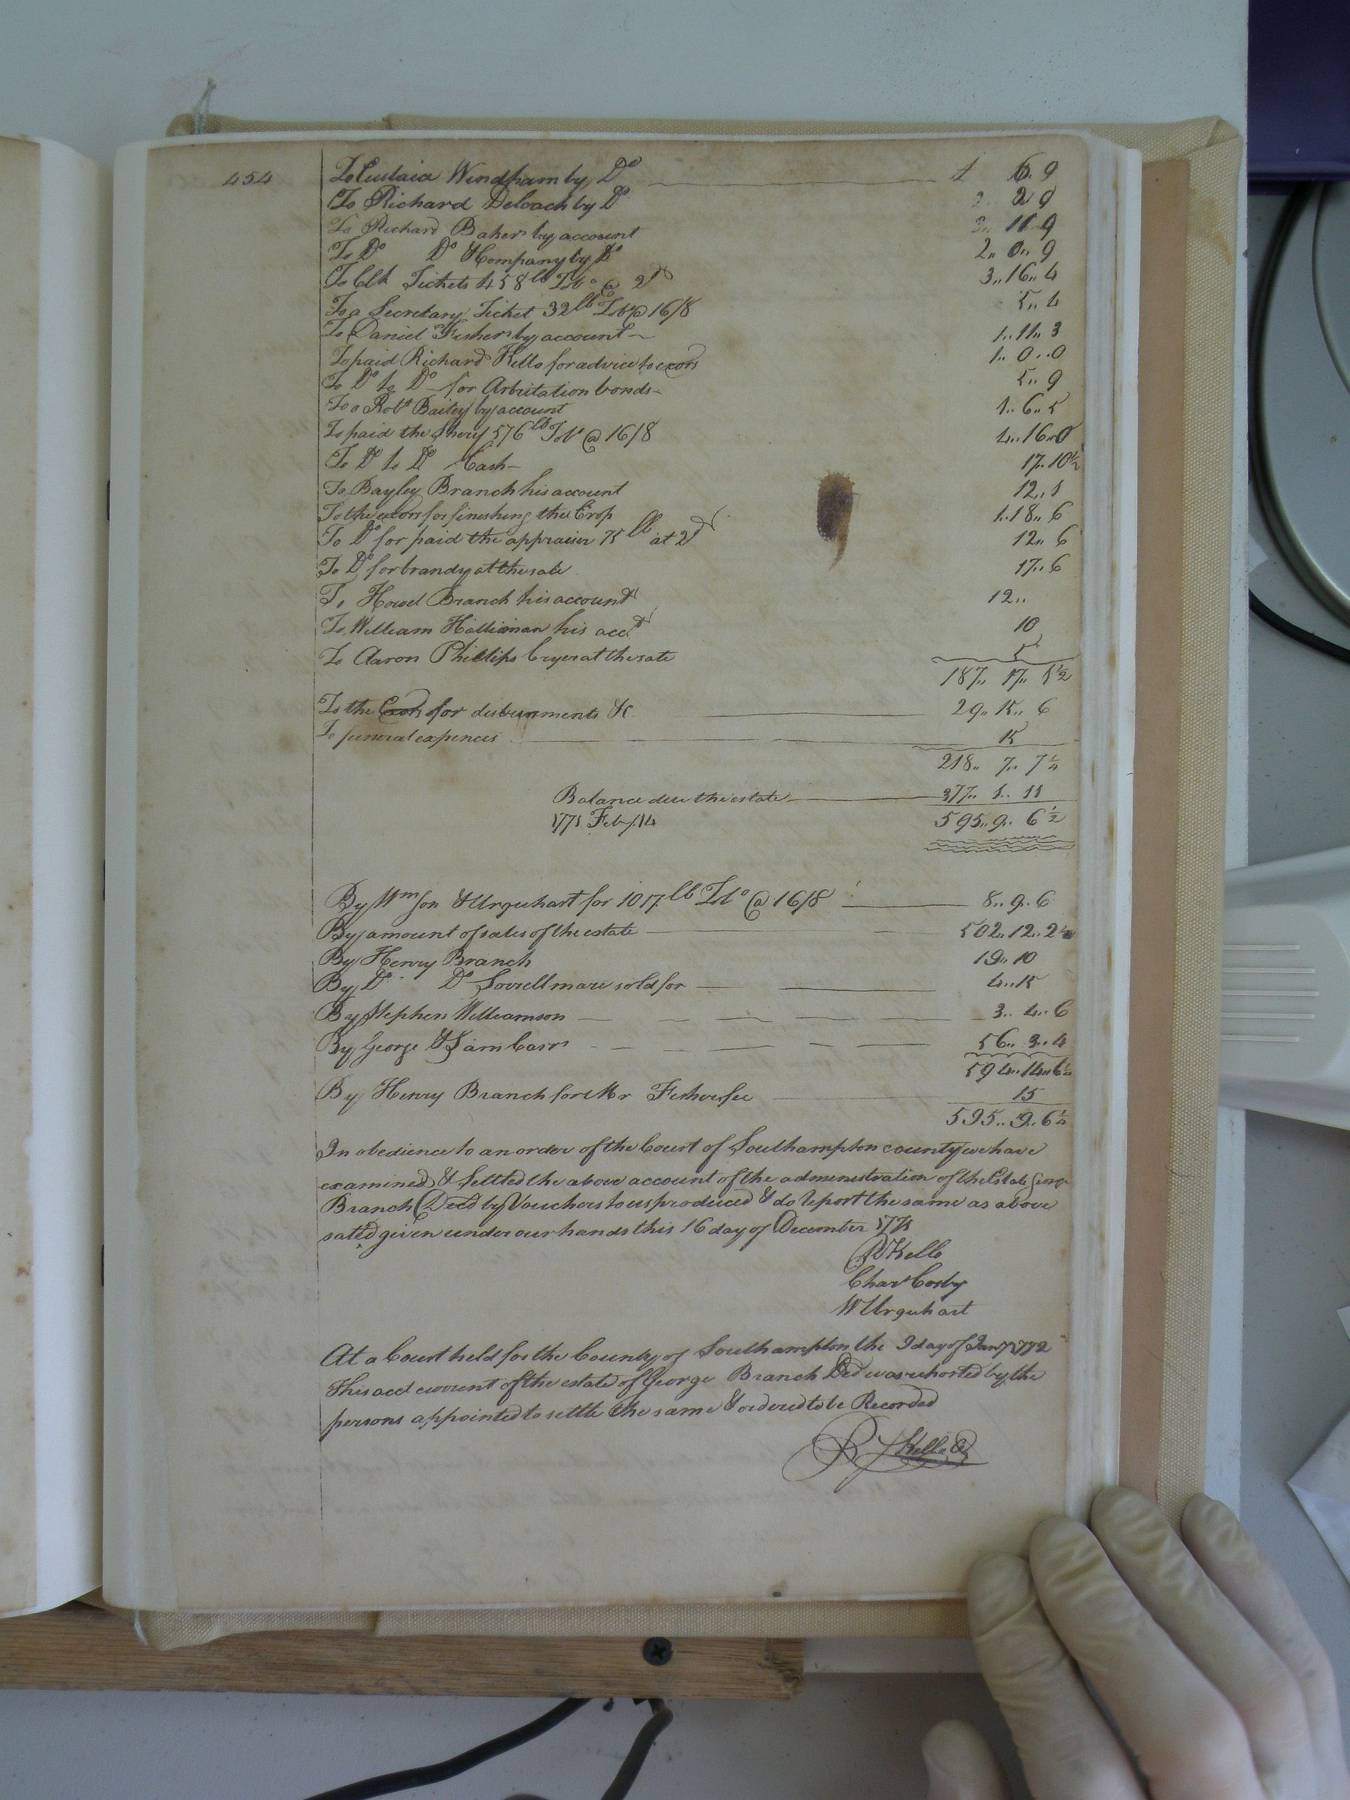 454
To Eulaia Windham by Do £ 6.9
To Richard Deloach by Do 2.. 2 9
To Richard Baker by account 3.. 11 9
To Do Do & Company by Do 2.. 0.. 9
To Clk Tickets 458 lb Tobo @ 2d 3.. 16.. 4
To a Secretary Ticket 32 lb Tobo @ 16/8 5.. 4
To Daniel Fisher by account 1.. 11.. 3
To paid Richard Kello for advice to exors 1.. 0.. 0
To Do to Do for Arbitation bonds 5.. 9
To a Robt Bailey by account 1.. 6.. 5
To paid the Sherif 576 lb Tobo @ 16/8 4.. 16.. 0
To Do to Do Cash 17.. 10½
To Bayley Branch his account 12.. 1
To the exors for finishing the Crop 1.. 18.. 6
To Do for paid the appraier 75 lb at 2d 12.. 6
To Do for brandy at the sale 17.. 6
To Howel Branch his account 12..
To William Halliman his acct 10
To Aaron Phillips Cryer at the sale 5
187.. 17.. 1½
To the Exors for disbursments &c 29.. 15.. 6
To funeral expences 15
218.. 7.. 7½
Balance due the estate 377.. 1.. 11
1771 Feby 14 595.. 9.. 6½
By Wmson & Urquhart for 1017 lb Tobo @ 16/8 8.. 9.. 6
By amount of sales of the estate 502.. 12.. 2½
By Henry Branch 19.. 10
By Do Do Sorrell mare sold for 4.. 15
By Stephen Williamson 3.. 4.. 6
By George & Sam Carr 56.. 3.. 4
594.. 14.. 6½
By Henry Branch for Mr Fisher fee 15
595.. 9.. 6½
In obedience to an order of the Court of Southampton county we have
examined & settled the above account of the administration of the Estate George
Branch Decd by Vouchers to us produced & do report the same as above
sated given under our hands this 16 day of December 1771
R Kello
Chas Cosby
W Urquhart
At a Court held for the County of Southampton the 9 day of Jany 1772
This acct current of the estate of George Branch Decd was rehorted by the
persons appointed to settle the same & ordered to be Recorded
R Kello